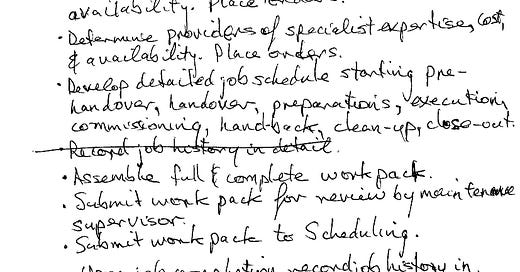 availability. Place orders.
• Determine providers of specialist expertise, cost,
& availability. Place orders.
• Develop detailed job schedule starting pre-
handover, handover, preparations, execution,
commissioning, hand-back, clean-up, close-out.
• Record job history in detail.
• Assemble full & complete work pack.
• Submit work pack for review by maintenance
supervisor.
• Submit work pack to Scheduling.
job completion record job history in